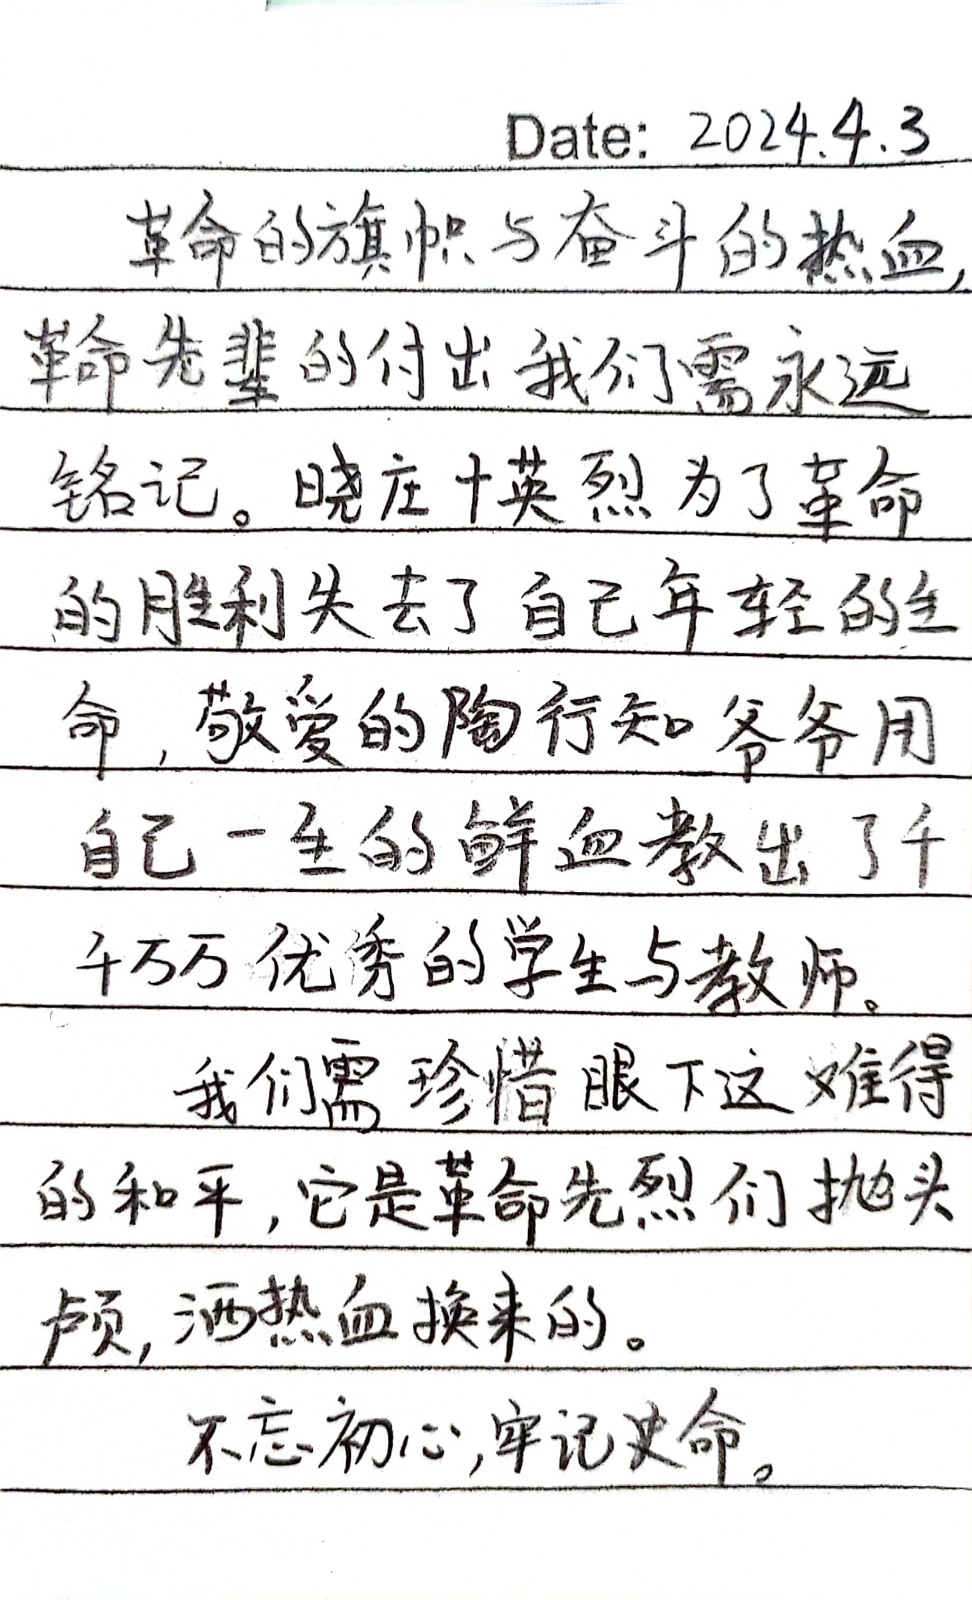 Date: 2024.4.3
革命的旗帜与奋斗的热血,
革命先辈的付出我们需永远
铭记。晓庄十英烈为了革命
的胜利失去了自己年轻的生
命,敬爱的陶行知爷爷用
自己一生的鲜血教出了千
千万万优秀的学生与教师。
我们需珍惜眼下这难得
的和平,它是革命先烈们抛头
颅,洒热血换来的。
不忘初心,牢记史命。